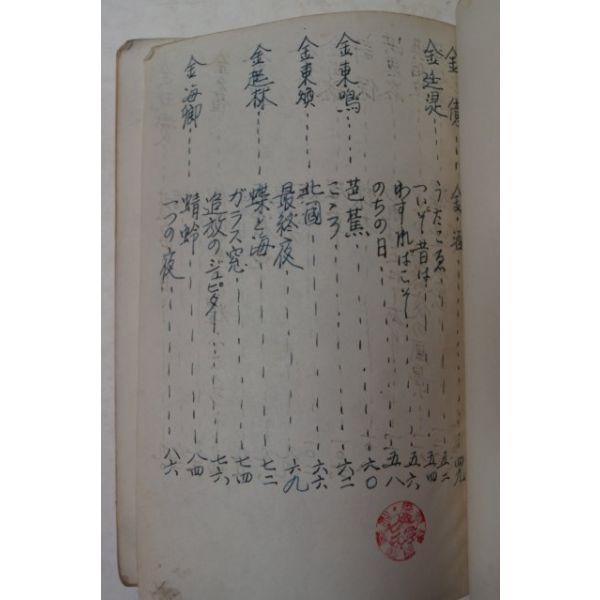 金億 四九
金廷湜 うたごゑ 五二
ついぞ昔は 五四
わすればこそ 五六
のちの日 五八
金東鳴 芭蕉 六〇
こゝろ 六二
金東煥 北国 六六
最終夜 六九
金起林 蝶と海 七二
ガラス窓 七四
追放のジュピター 七六
蜻蛉 八四
一つの夜 八六